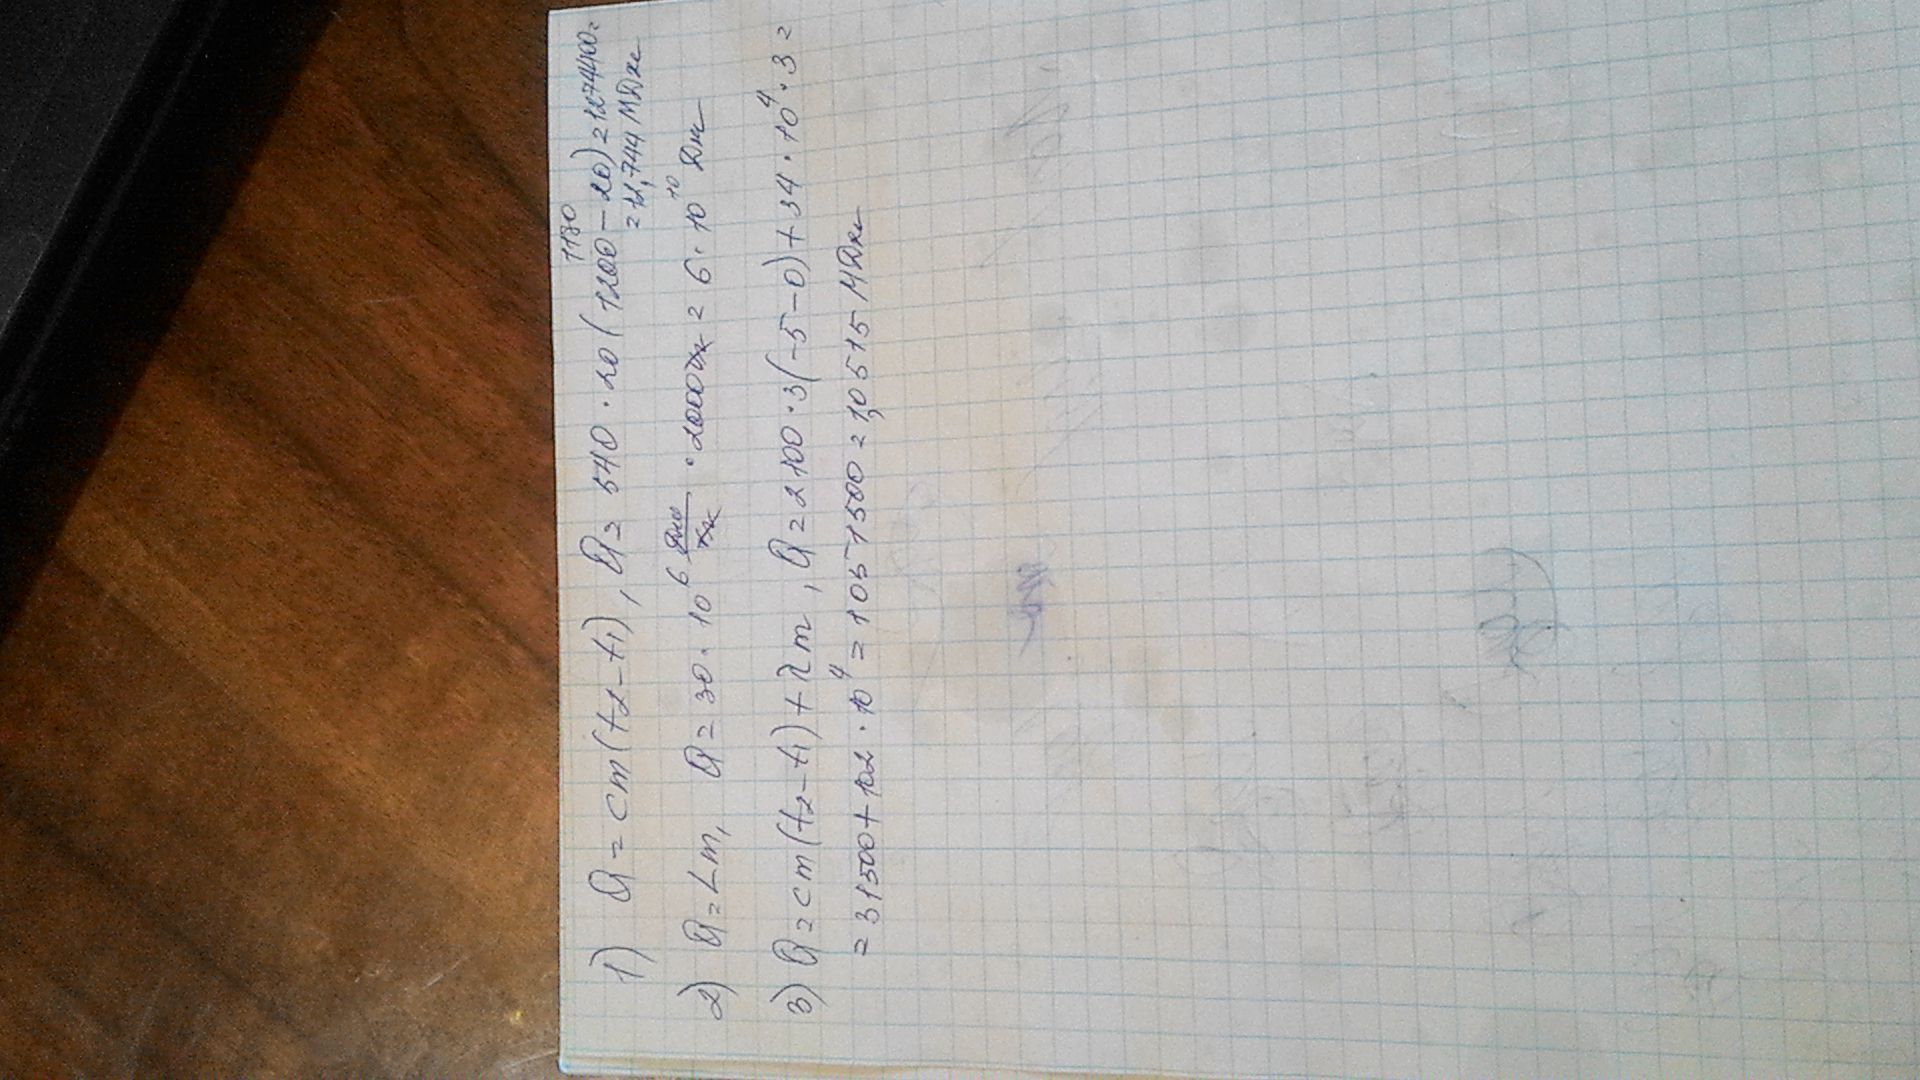 1180
1) Q = cm(t2 - t1), Q = 540 · 20 (1200 - 20) = 12744400 =
= 12,744 МДж
2) Q = Lm, Q = 30 · 10⁶ Дж/кг · 2000кг = 6 · 10¹⁰ Дж
3) Q = cm(t2 - t1) + λm, Q = 2100 · 3(-5 - 0) + 34 · 10⁴ · 3 =
= 31500 + 102 · 10⁴ = 1051500 = 1,0515 МДж